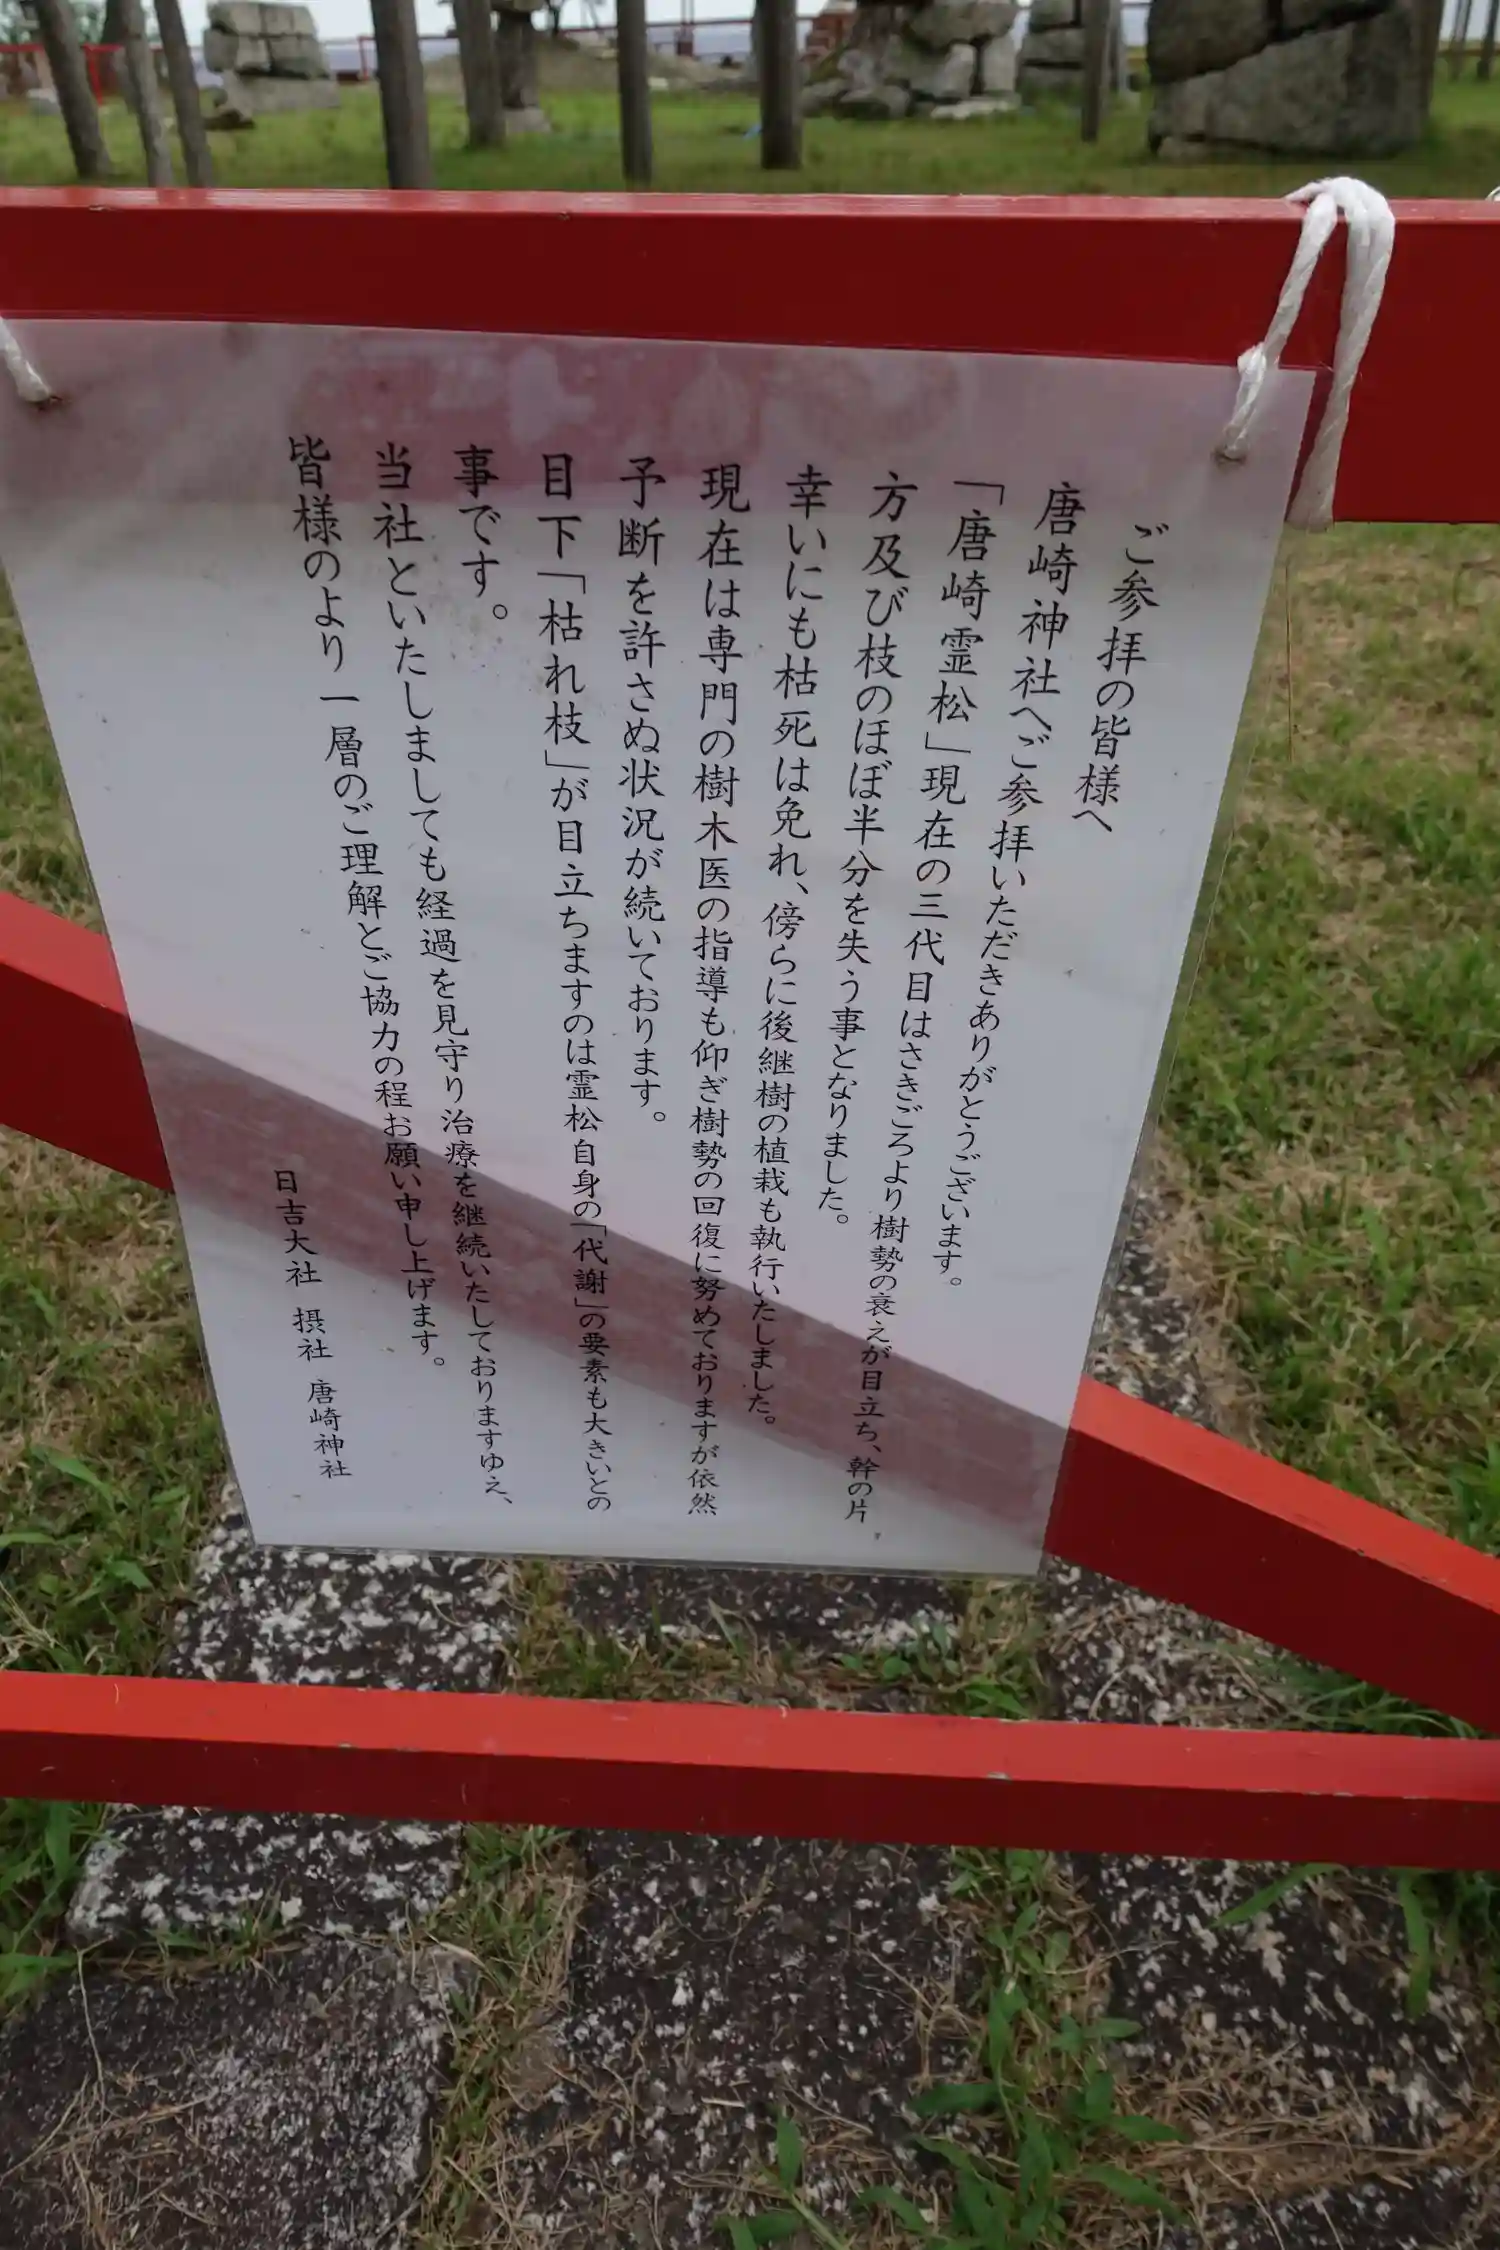 ご参拝の皆様へ
唐崎神社へご参拝いただきありがとうございます。
「唐崎霊松」現在の三代目はさきごろより樹勢の衰えが目立ち、幹の片
方及び枝のほぼ半分を失う事となりました。
幸いにも枯死は免れ、傍らに後継樹の植栽も執行いたしました。
現在は専門の樹木医の指導も仰ぎ樹勢の回復に努めておりますが依然
予断を許さぬ状況が続いております。
目下「枯れ枝」が目立ちますのは霊松自身の「代謝」の要素も大きいとの
事です。
当社といたしましても経過を見守り治療を継続いたしておりますゆえ、
皆様のより一層のご理解とご協力の程お願い申し上げます。
日吉大社 摂社 唐崎神社